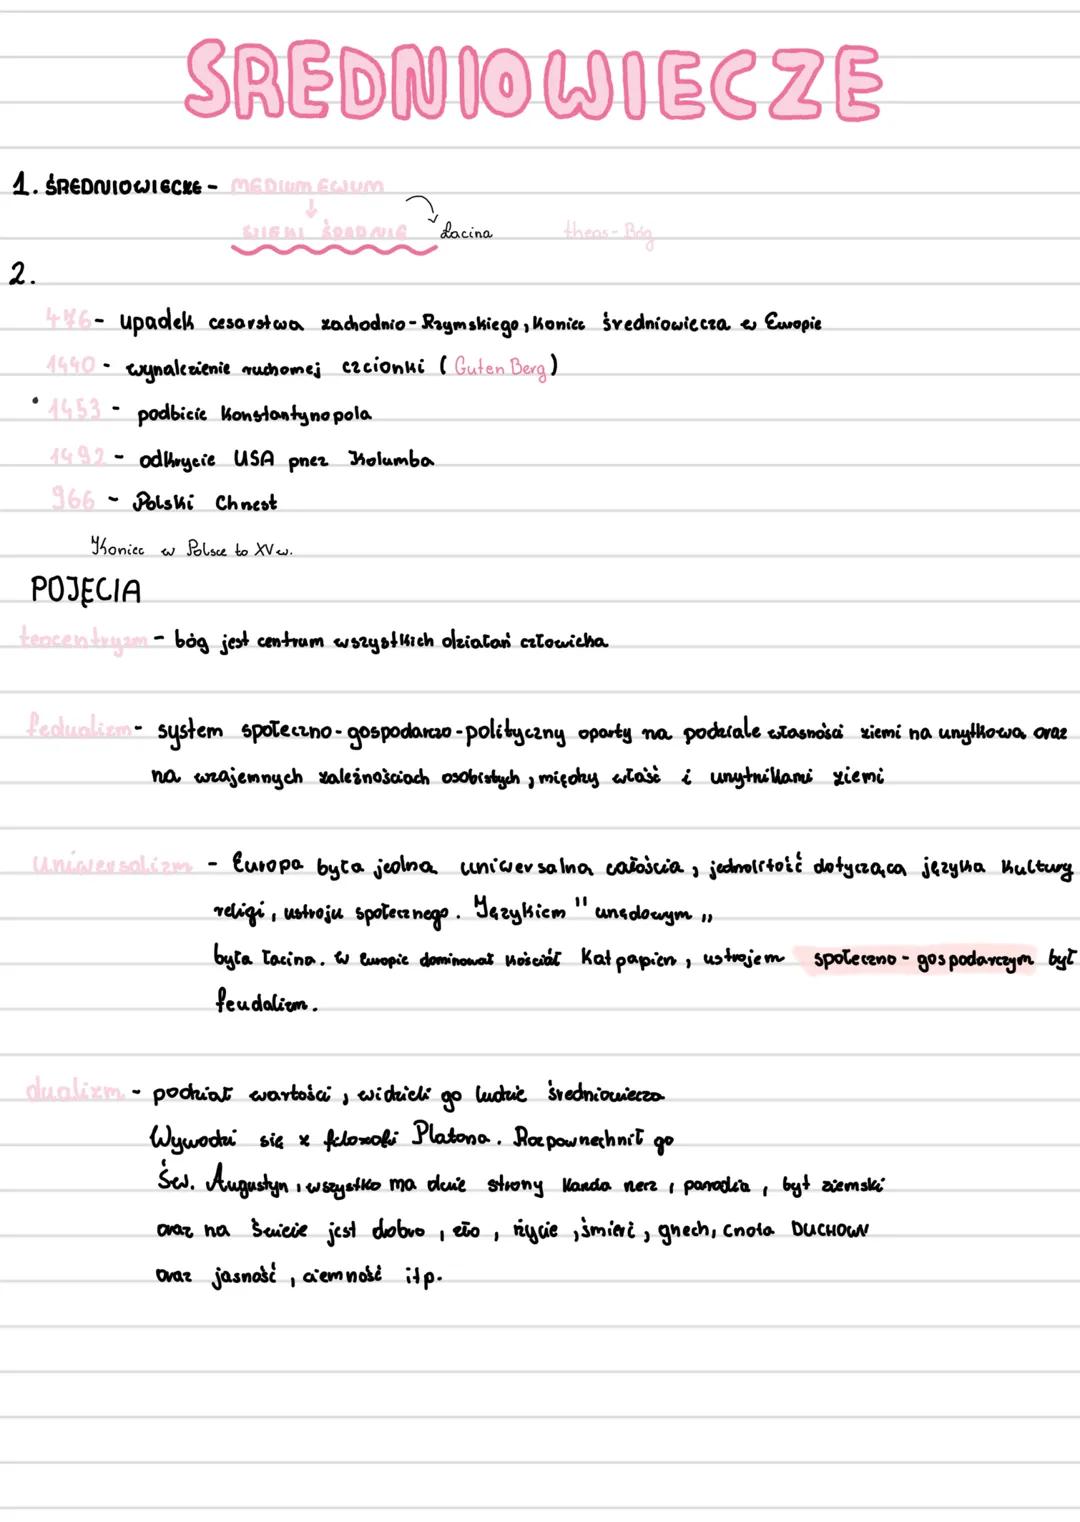 SREDNIOWIECZE
1. ŚREDNIOWIECZE - MEDIUM EWUM
↓
WIEKI ŚREDNIE Łacina theos - Bóg
2.
476 - upadek cesarstwa zachodnio - Rzymskiego, Koniec średniowiecza w Europie
1440 - wynalezienie ruchomej czcionki (Guten Berg)
• 1453 - podbicie Konstantynopola
1492 - odkrycie USA przez Kolumba
966 - Polski Chrzest
Koniec w Polsce to XV w.
POJĘCIA
teocentryzm - bóg jest centrum wszystkich działań człowieka
fedualizm - system społeczno - gospodarczo - polityczny oparty na podziale własności ziemi na użytkową oraz
na wzajemnych zależnościach osobistych, między właść i użytnikami ziemi
uniwersalizm - Europa była jedną uniwersalną całością, jednolitość dotycząca języka kultury
religi, ustroju społecznego. Językiem " urzędowym ,,
była łacina. W Europie dominował kościół Kat papien, ustrojem społeczno - gospodarczym był
feudalizm.
dualizm - podział wartości, widzieli go ludzie średniowiecza
Wywodzi się z filozofi Platona. Rozpowrzechnił go
Św. Augustyn, wszystko ma dwie strony każda rzez, paradia, byt ziemski
oraz na świcie jest dobro, zło, życie, śmierć, grzech, cnota DUCHOWN
oraz jasność, ciemność itp.